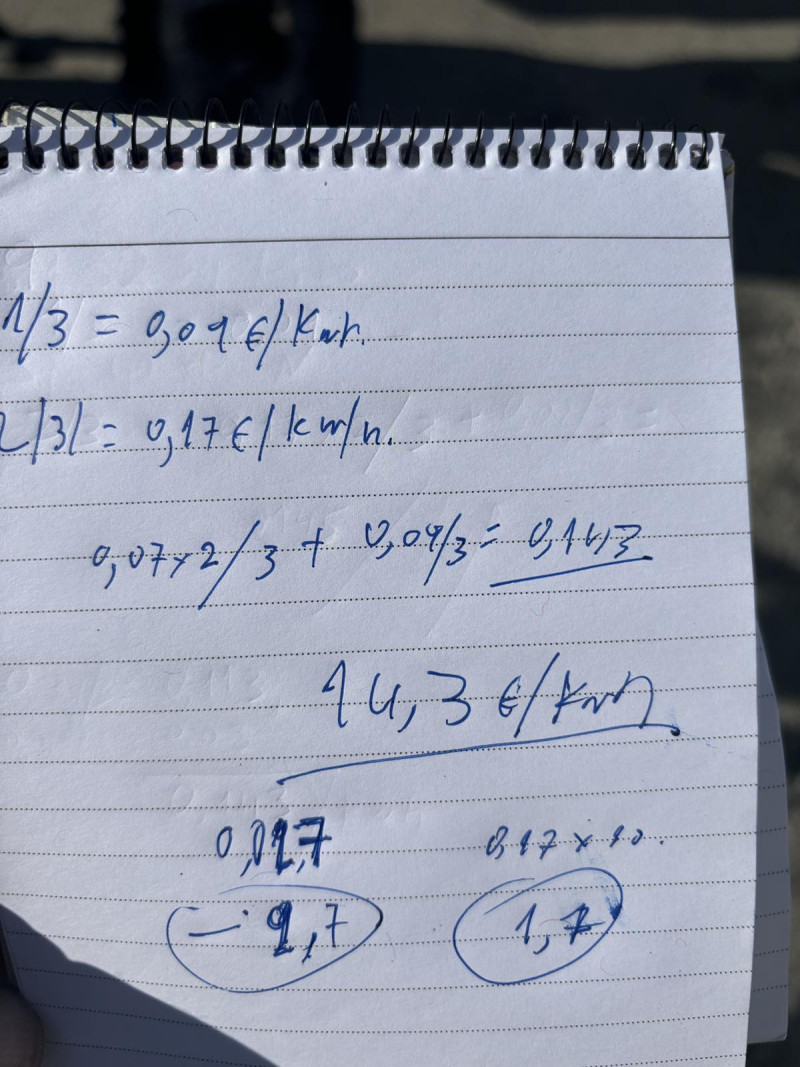 1/3 = 0,09 €/Kwh.
2/3 = 0,17 €/km/n.
0,07 x 2/3 + 0,09/3 = 0,143
14,3 €/Kwh
0,17 x 10.
1,7